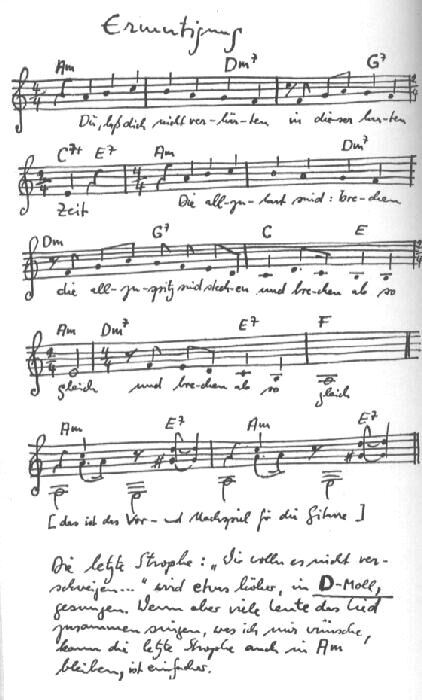 Ermutigung
Am Dm7 G7
Du, laß dich nicht ver-här-ten in dieser har-ten
C7+ E7 Am Dm7
Zeit Die all-zu-hart sind : bre-chen
Dm G7 C E
die all-zu-spitz sind stech-en und bre-chen ab so
Am Dm7 E7 F
gleich und bre-chen ab so gleich
Am E7 Am E7
[das ist das Vor- und Nachspiel für die Gitarre]
Die letzte Strophe : „Wir wolln es nicht ver-
schweigen..." wird etwas höher, in D-Moll,
gesungen. Wenn aber viele Leute das Lied
zusammen singen, was ich mir wünsche,
kann die letzte Strophe auch in Am
bleiben, ist einfacher.